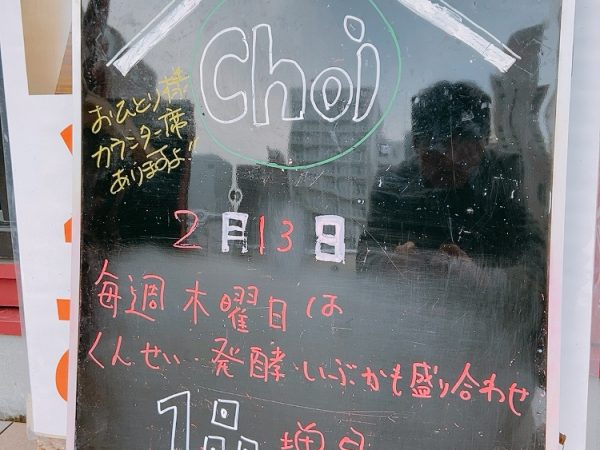 Choi
おひとり様
カウンター席
ありますよ!!
2月13日
毎週木曜日は
くんせい・発酵・いぶかも盛り合わせ
1品増量